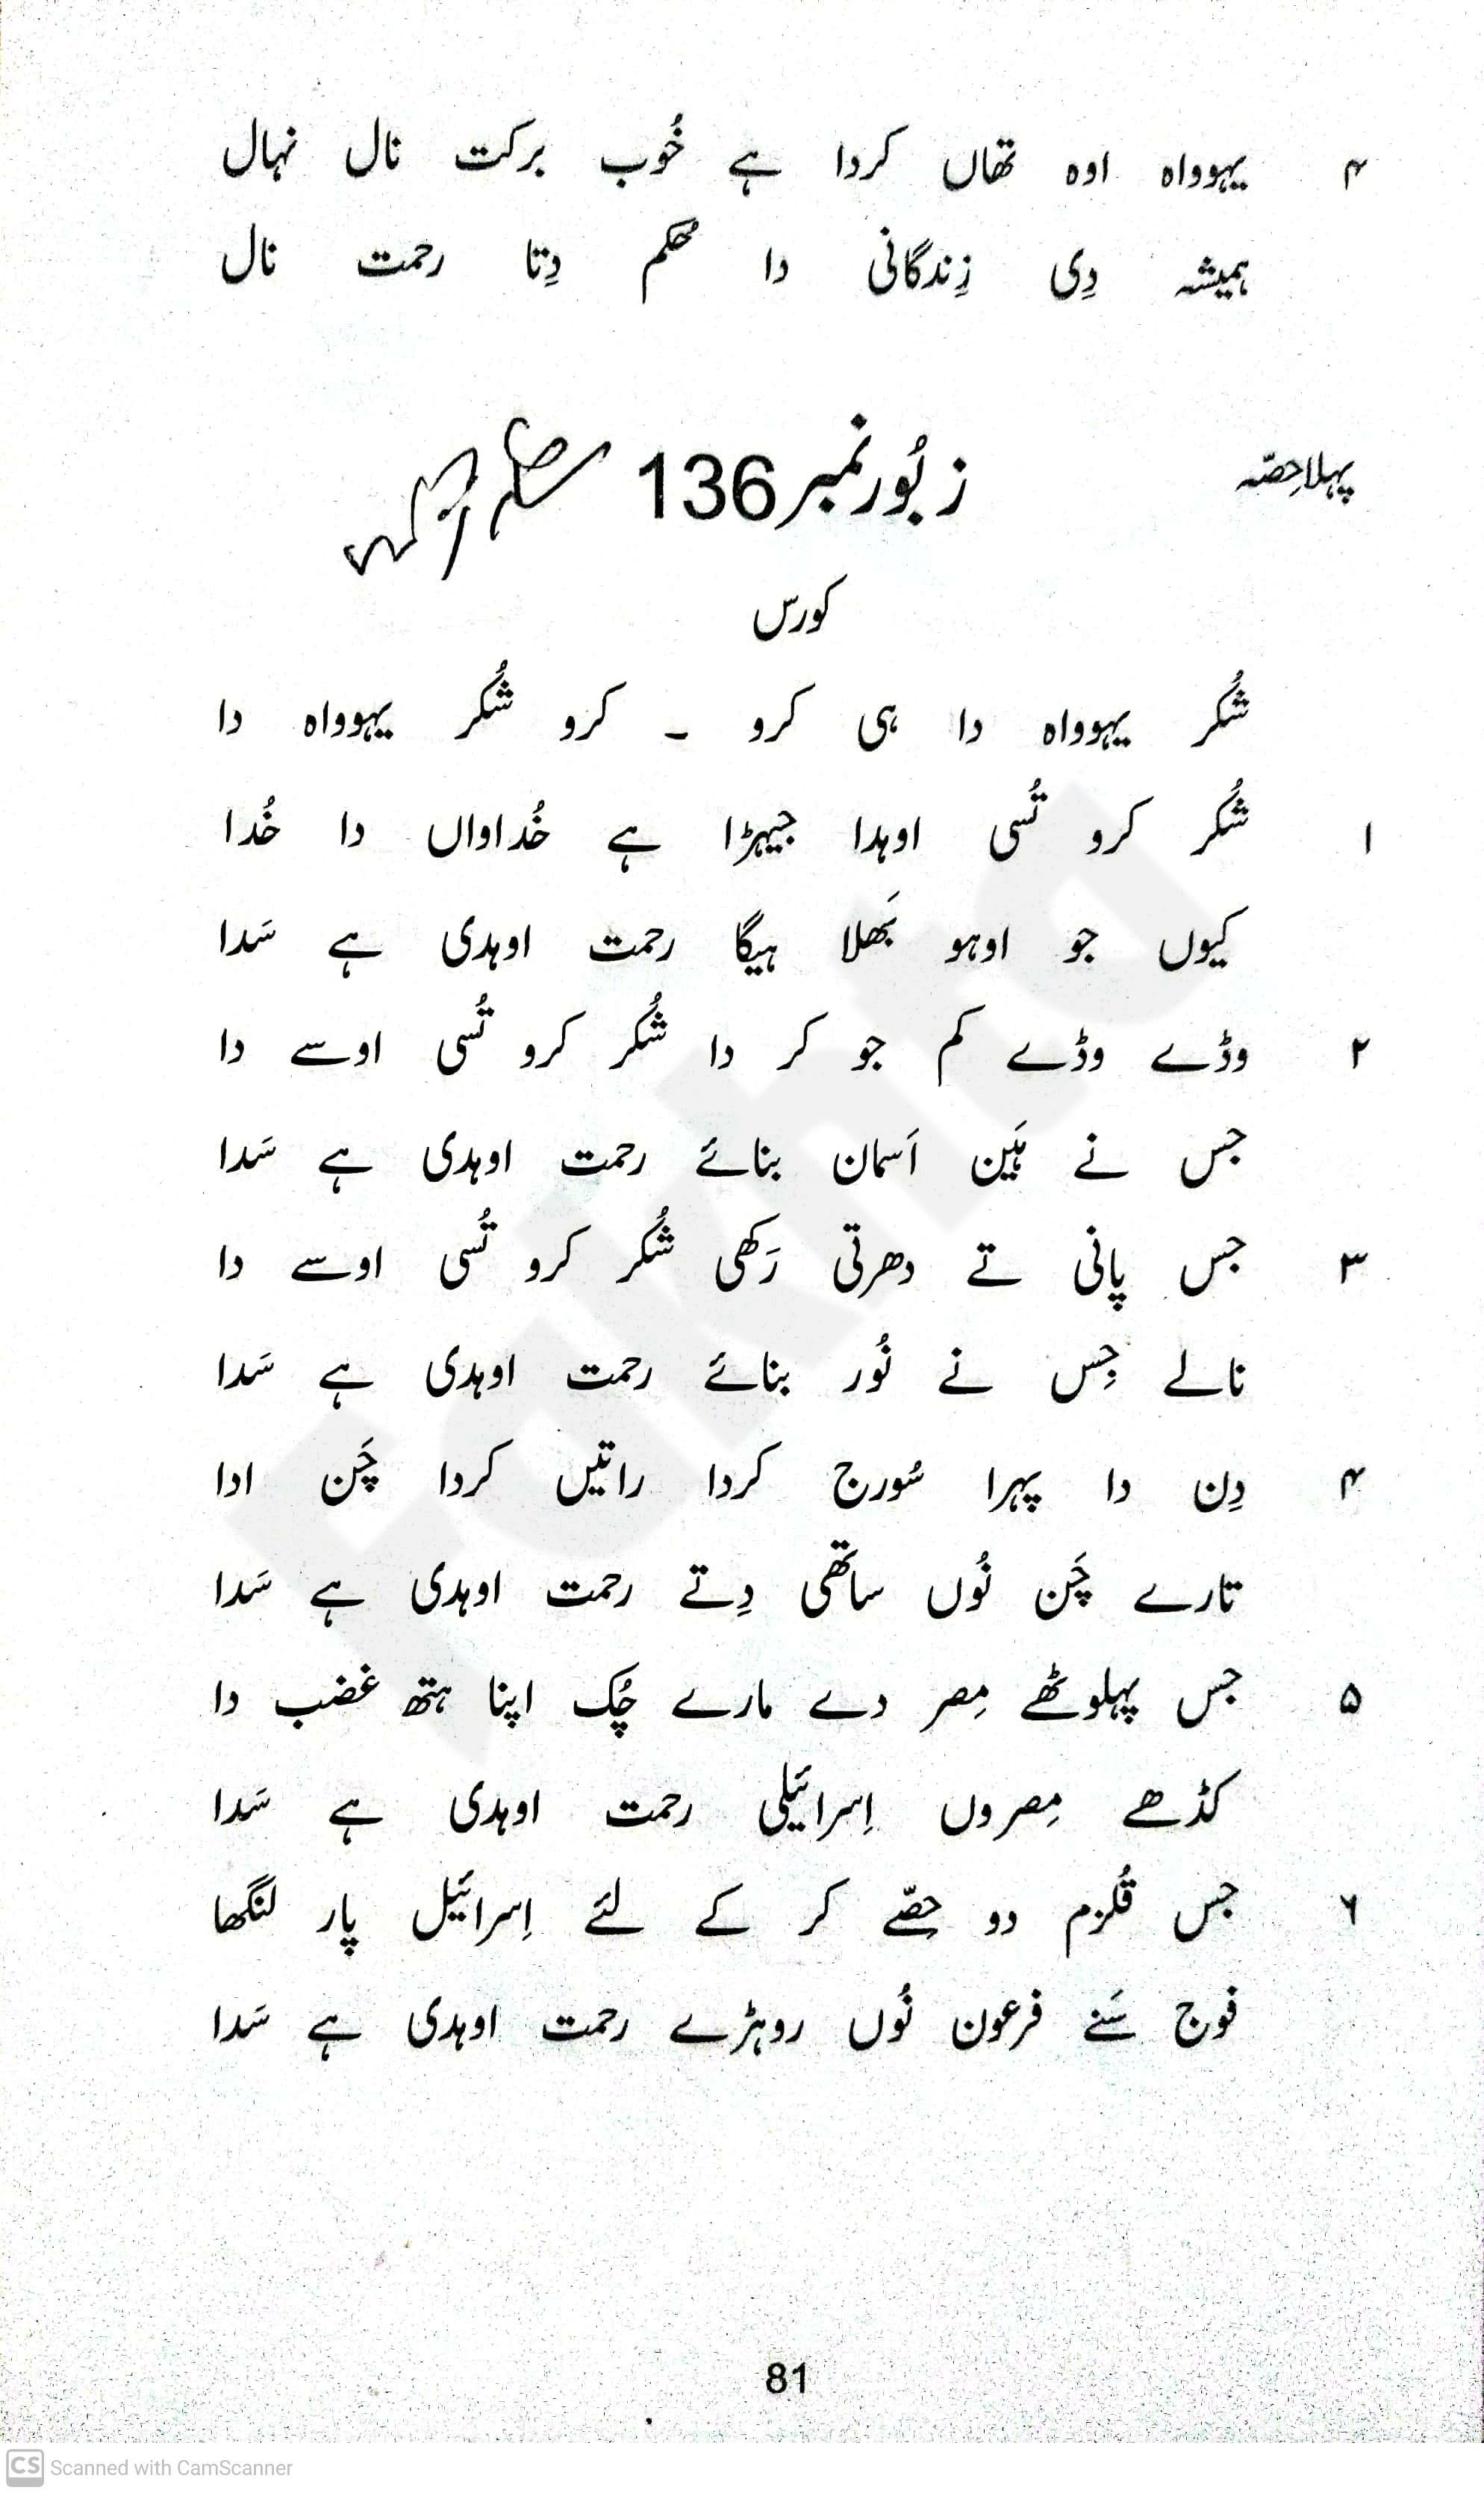 ۴ یہوواہ اوہ تھاں کردا ہے خُوب برکت نال نہال
ہمیشہ دِی زِندگانی دا حُکم دِتا رحمت نال
پہلا حِصّہ
زبُور نمبر 136
کورس
شُکر یہوواہ دا ہی کرو ۔ کرو شُکر یہوواہ دا
۱ شُکر کرو تُسی اوہدا جیہڑا ہے خُداواں دا خُدا
کیوں جو اوہو بَھلا ہیگا رحمت اوہدی ہے سَدا
۲ وڈے وڈے کم جو کر دا شُکر کرو تُسی اوسے دا
جس نے ہَین اَسمان بنائے رحمت اوہدی ہے سَدا
۳ جس پانی تے دھرتی رَکھی شُکر کرو تُسی اوسے دا
نالے جِس نے نُور بنائے رحمت اوہدی ہے سَدا
۴ دِن دا پہرا سُورج کردا راتیں کردا چَن ادا
تارے چَن نُوں ساتھی دِتے رحمت اوہدی ہے سَدا
۵ جس پہلوٹھے مِصر دے مارے چُک اپنا ہتھ غضب دا
کڈھے مِصروں اِسرائیلی رحمت اوہدی ہے سَدا
۶ جس قُلزم دو حِصّے کر کے لئے اِسرائیل پار لنگھا
فوج سَنے فرعون نُوں روہڑے رحمت اوہدی ہے سَدا
81
CS Scanned with CamScanner
Fakhta